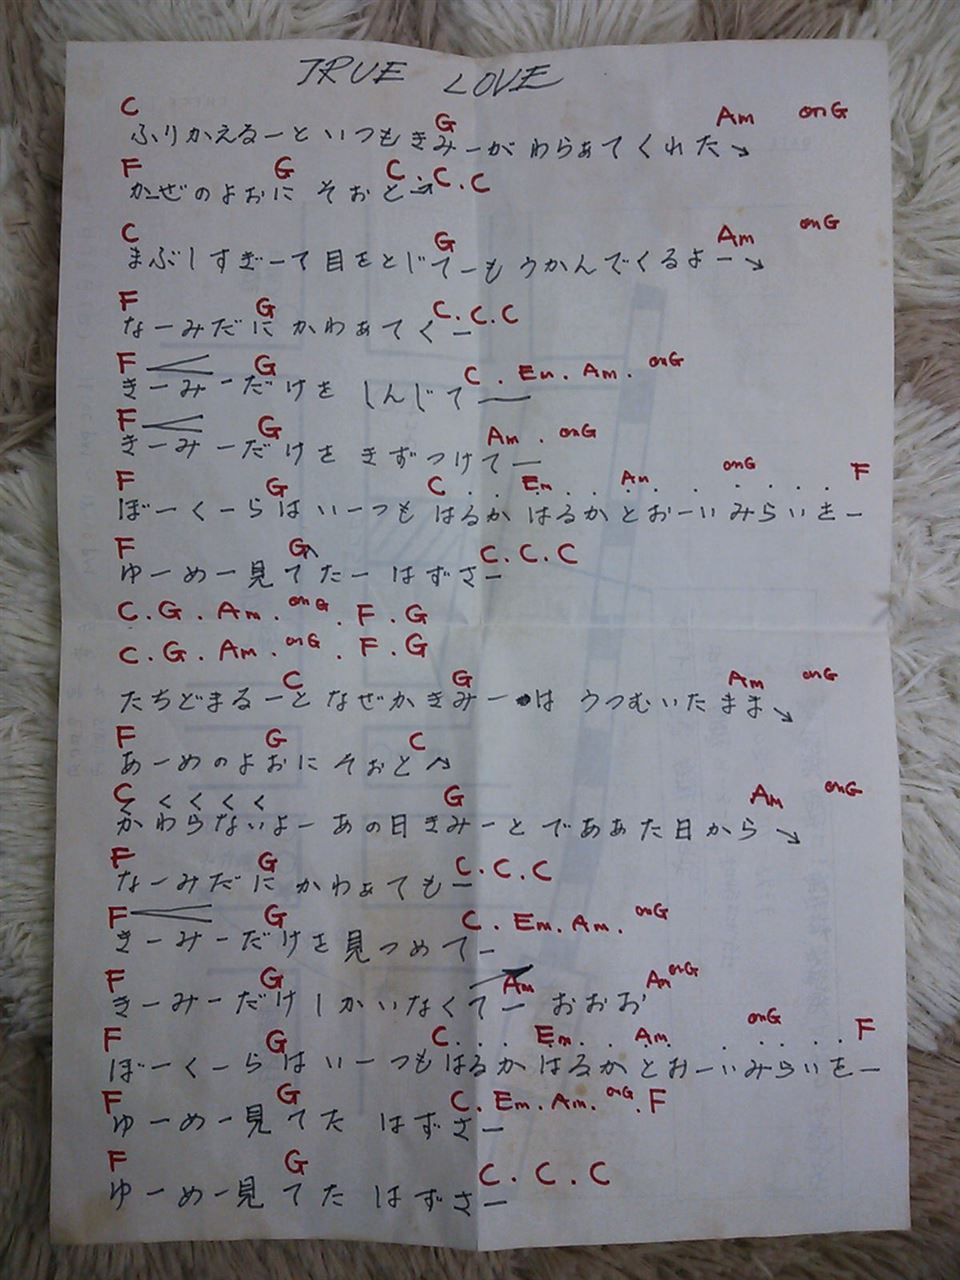 TRUE LOVE
C G Am onG
ふりかえるーと いつもきみーが わらぁてくれた↘
F G C.C.C
かーぜのよおに そおと→
C G Am onG
まぶしすぎーて 目をとじてーも うかんでくるよー↘
F G C.C.C
なーみだに かわぁてくー
F G C.Em.Am.onG
きーみーだけを しんじてー
F G Am.onG
きーみーだけを きずつけてー
F G C..Em..Am...onG....F
ぼーくーらは いーつも はるか はるか とおーいみらいをー
F G C.C.C
ゆーめー見てたー はずさー
C.G.Am.onG.F.G
C.G.Am.onG.F.G
C G Am onG
たちどまるーと なぜかきみーは うつむいたまま↘
F G C
あーめのよおに そおと
C くくくく G Am onG
かわらないよー あの日きみーと であぁた日から↘
F G C.C.C
なーみだに かわぁてもー
F G C.Em.Am.onG
きーみーだけを見つめてー
F G Am AmonG
きーみーだけしかいなくてー おおお
F G C...Em..Am...onG....F
ぼーくーらは いーつも はるか はるか とおーいみらいをー
F G C.Em.Am.onG.F
ゆーめー見てた はずさー
F G C.C.C
ゆーめー見てた はずさー